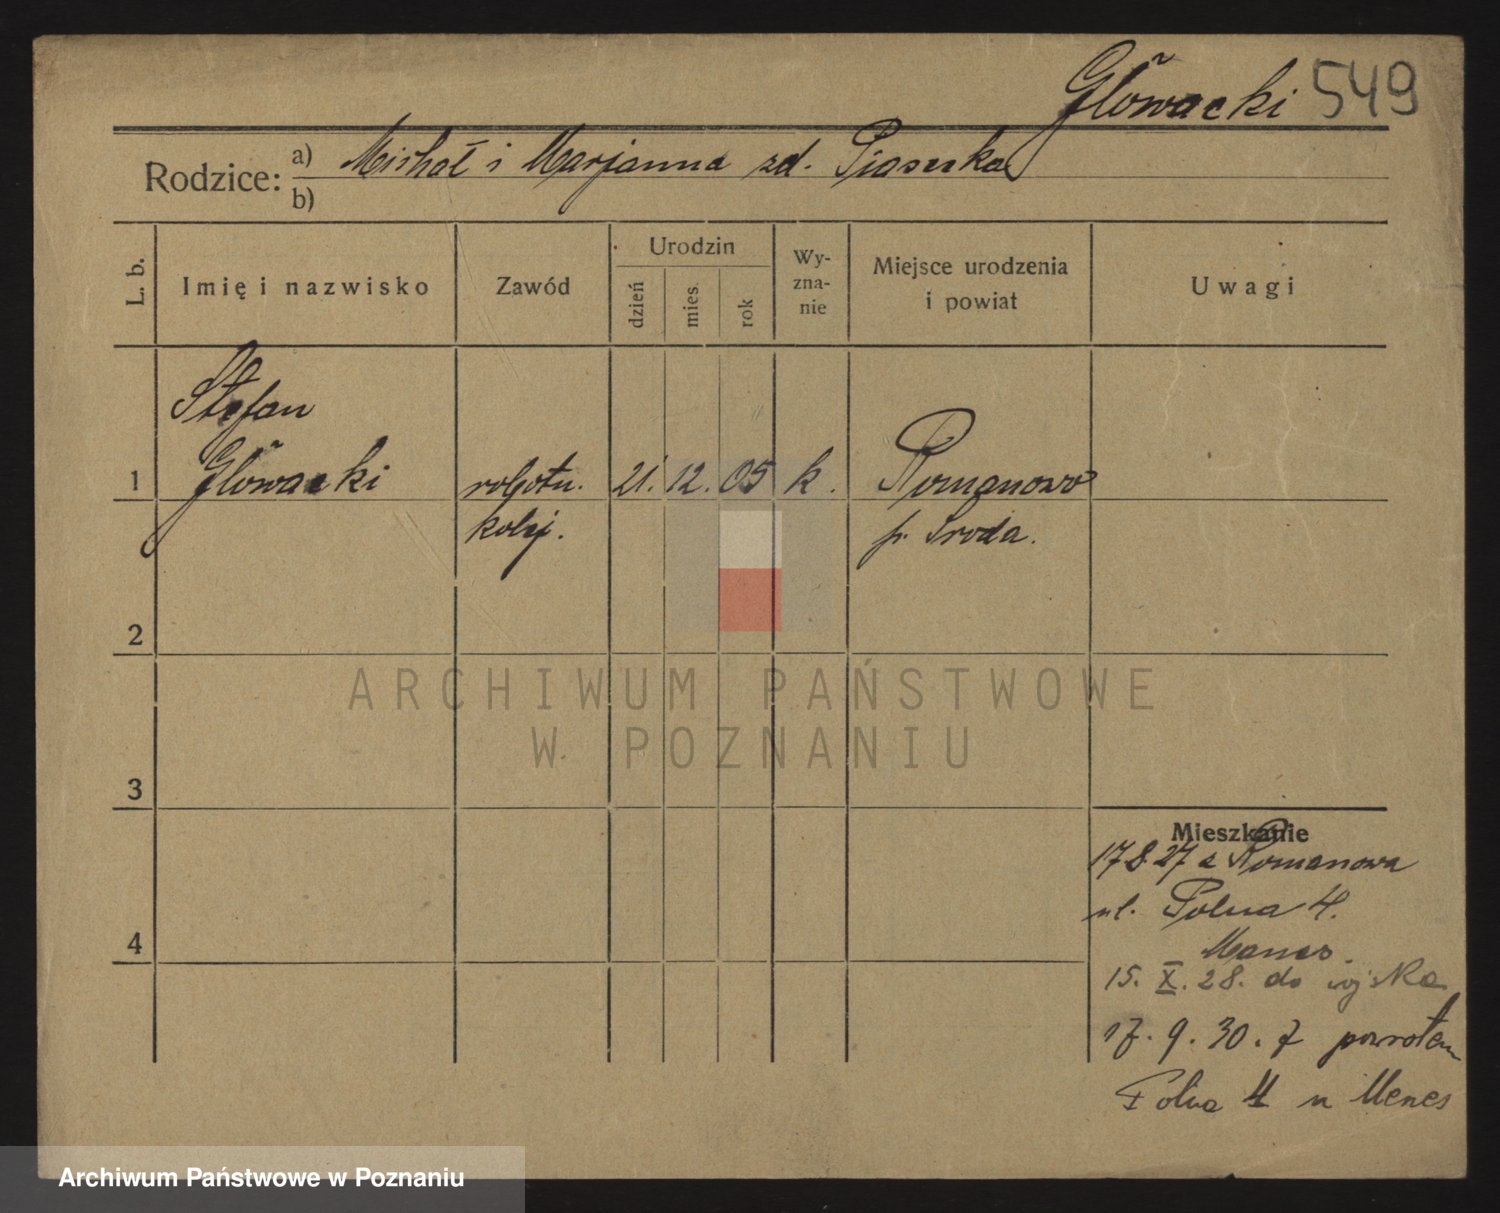 Głowacki 549
Rodzice: a) Michał i Marjanna zd. Piasecka
b)
L. b. Imię i nazwisko Zawód Urodzin dzień mies. rok Wyznanie Miejsce urodzenia i powiat Uwagi
Stefan
1 Głowacki robotn. 21. 12. 05 k. Romanowo
kolej. p. Środa.
2
ARCHIWUM PAŃSTWOWE
W POZNANIU
3
Mieszkanie
17 8. 27 z Romanowa
ul. Polna 4.
4
15. X. 28. do wojska
17. 9. 30. z powrotem
Polna 4 u
Archiwum Państwowe w Poznaniu